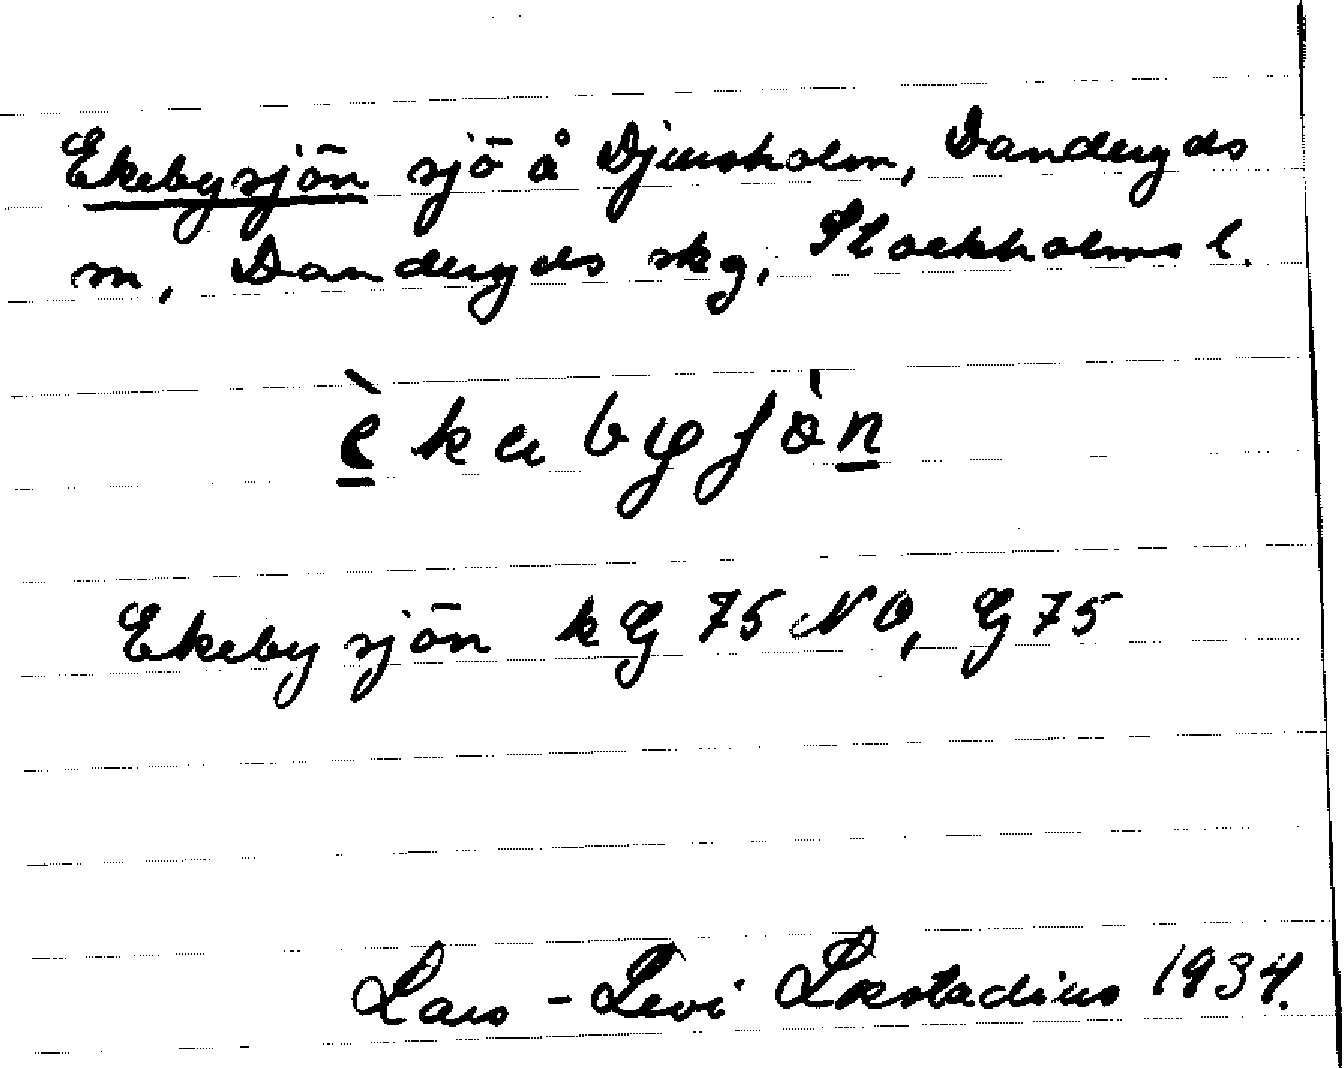 Ekebysjön sjö å Djursholm, Danderyds
m, Danderyds skg, Stockholms l.
èkabyʃö̀n
Ekebysjön kG 75 NO, G 75
Lars-Levi Læstadius 1934.